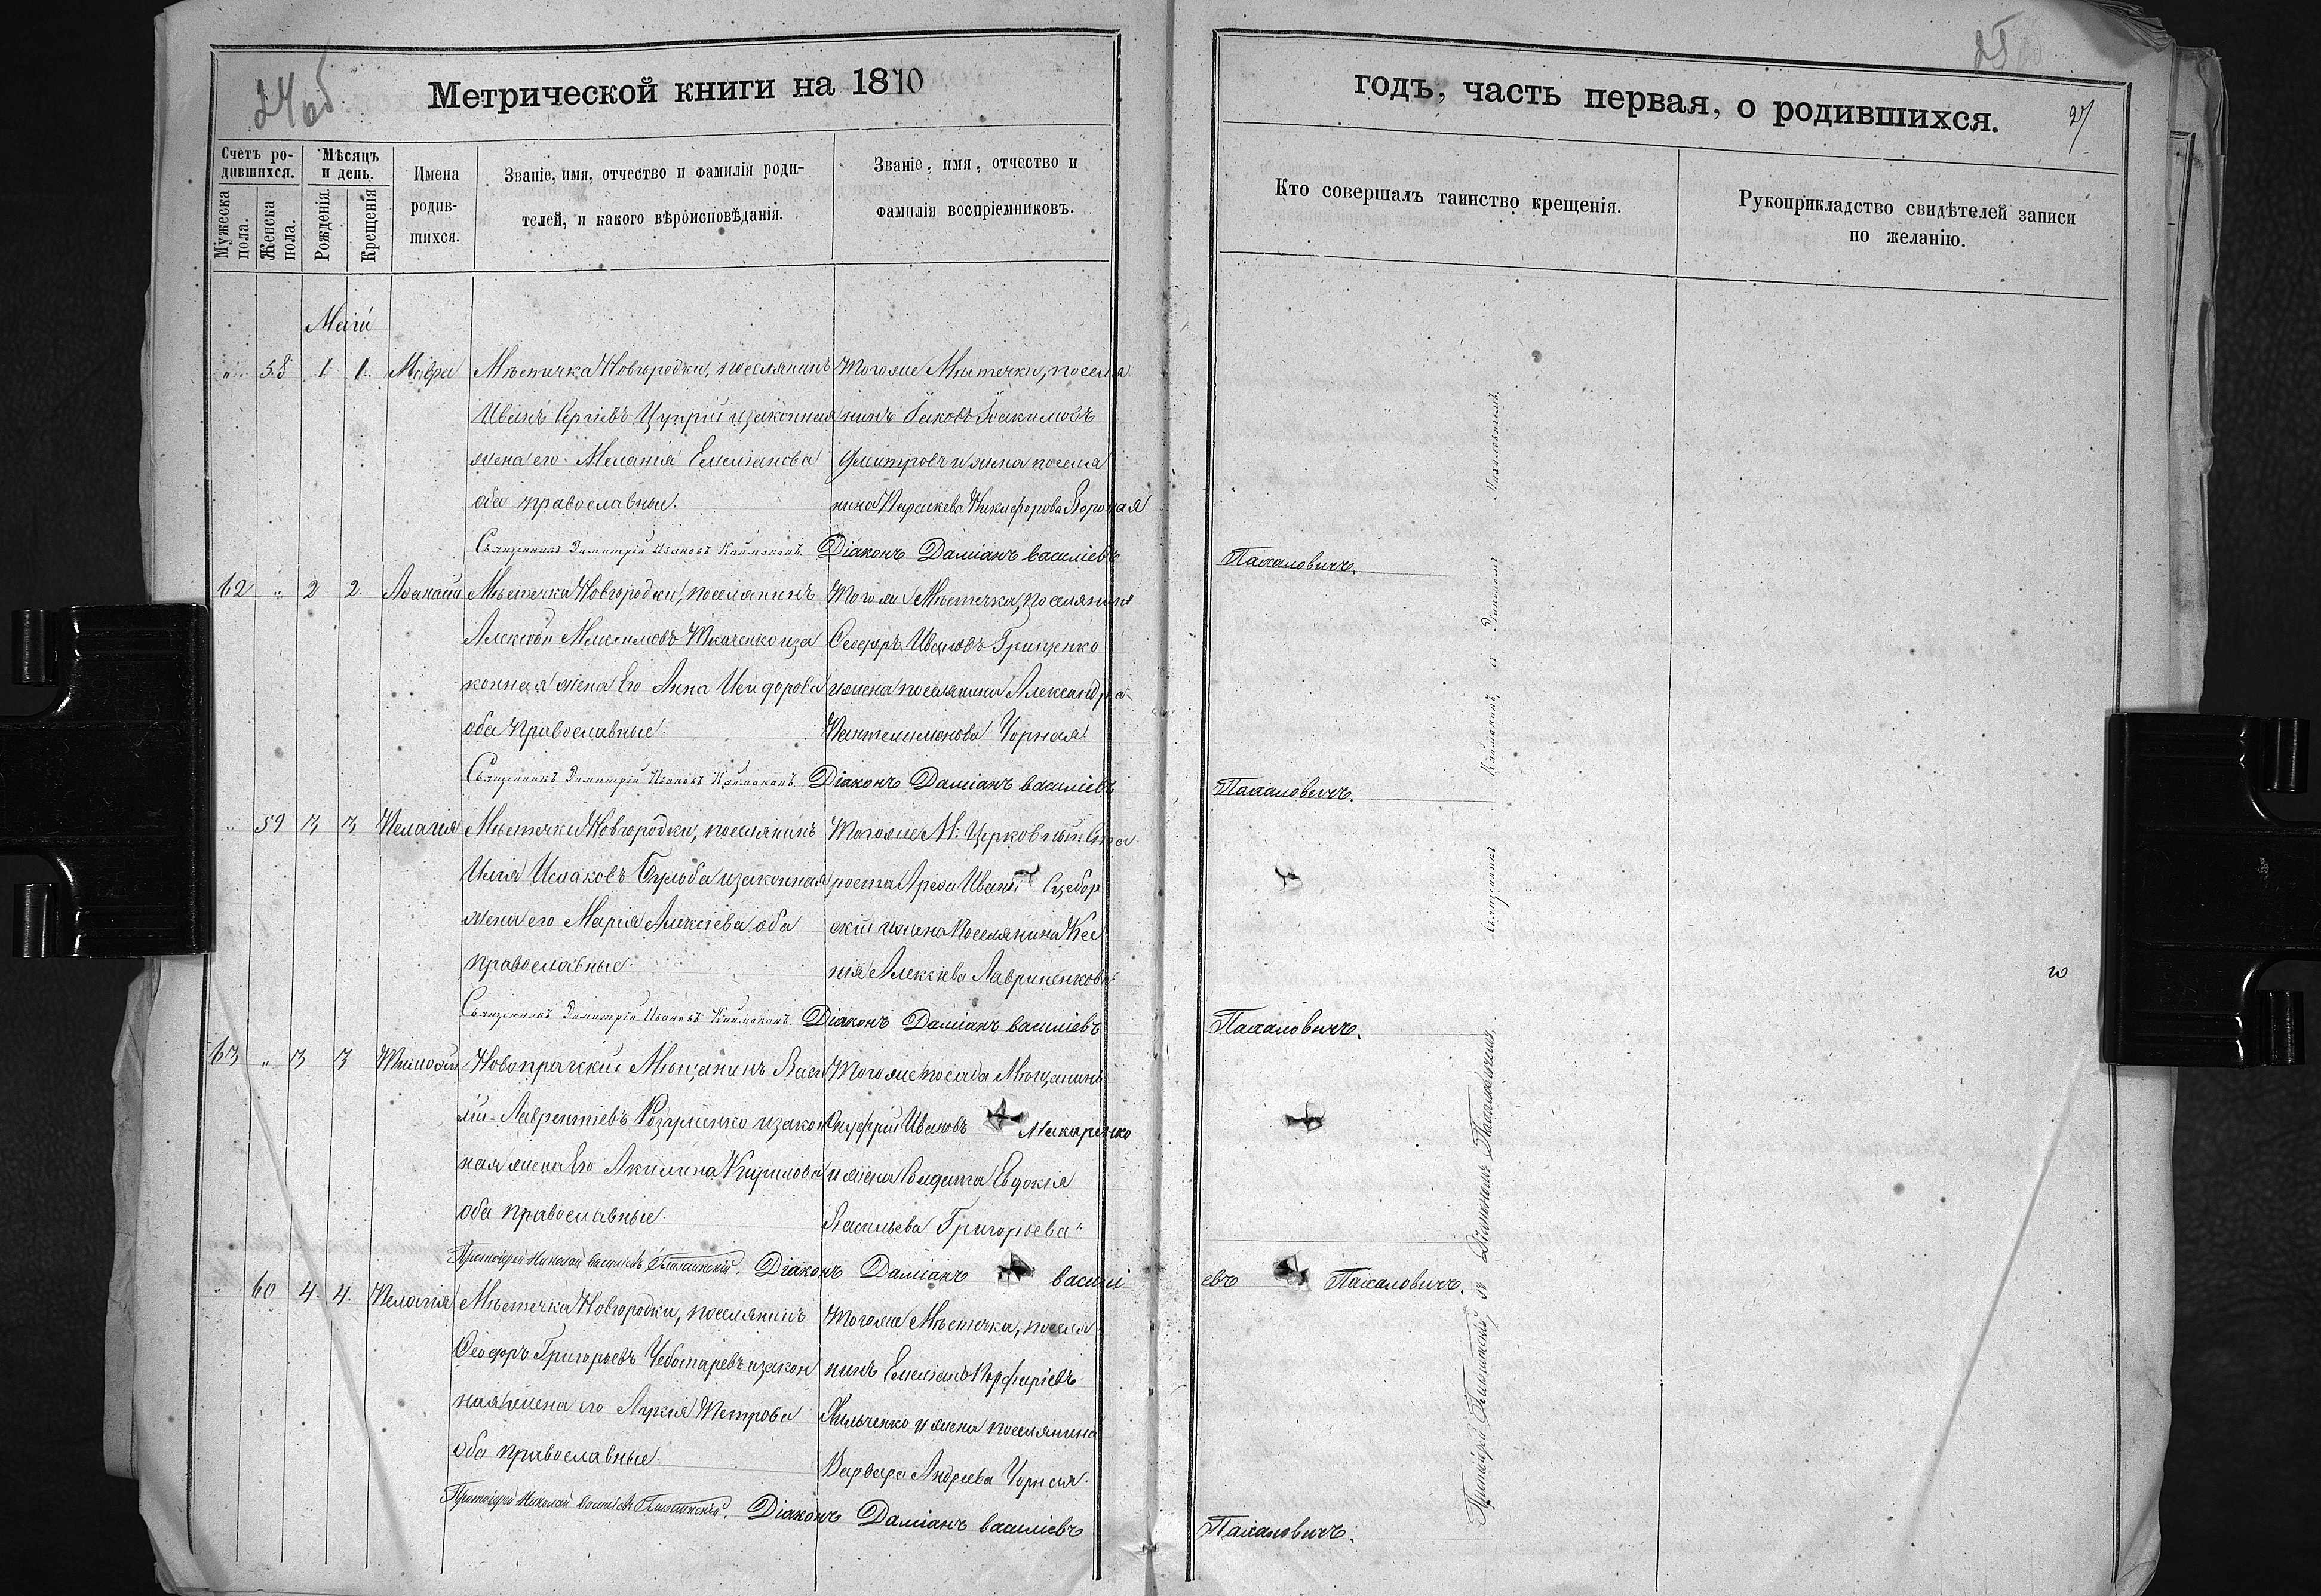 24об
Метрической книги на 1870
Счетъ ро-
дившихся.
Мужеска пола.
Женска пола.
Мѣсяцъ
и день.
Рожденія.
Крещенія
Имена
родив-
шихся.
Званіе, имя, отчество и фамилія роди-
телей, и какого вѣроисповѣданія.
Званіе, имя, отчество и
фамилія воспріемниковъ.
Маій
58 1 1. Мавра
Мѣстечка Новгородки, поселянинъ
Иванъ Сергіевъ Цупрій и законная
жена его Меланія Емеліанова
оба православные.
Тогоже Мѣстечка, поселя
нинъ Іаковъ Іоакимовъ
Димитровъ и жена поселя
нина Параскева Никифорова
Священникъ Димитрій Ивановъ Каймаканъ. Діаконъ Даміанъ Василіевъ
62 " 2 2. Аѳанасій
Мѣстечка Новгородки, поселянинъ
Алексѣй Максимовъ Ткаченко и за
конная жена Его Анна Исидорова
оба православные
Тогоже Мѣстечка, поселянинъ
Ѳеодоръ Ивановъ Грищенко
и жена поселянина Александра
Пантелимонова Чорная
Священникъ Димитрій Ивановъ Каймаканъ Діаконъ Даміанъ Василіевъ
" 59 3 3 Пелагія
Мѣстечка Новгородки, поселянинъ
Илія Исааковъ Бульба и законная
жена его Марія Алексіева оба
православные.
Тогоже М: Церковный Ста
роста Ивану
скій и жена Поселянина Ксе
нія Алексіева Лавриненкова
Священникъ Димитрій Ивановъ Каймаканъ. Діаконъ Даміанъ Василіевъ
63 " 3 3 Тимоѳей
Новопражскій Мѣщанинъ Васи
лій Лаврентіевъ Розуменко и закон
ная жена Его Акилина Кирилова
оба православные.
Тогоже посада Мѣщанинъ
Онуфрій Ивановъ Макаренко
и жена Солдата Евдокія
Васильева Григорьева
Протоіерей Николай Василіевъ Діаконъ Даміанъ Василі
" 60 4. 4. Пелагія
Мѣстечка Новгородки, поселянинъ
Ѳеодоръ Григорьевъ Чеботаревъ и закон
ная жена его Лукія Петрова
оба православные
Тогоже Мѣстечка, поселя
нинъ Емеліанъ Порфиріевъ
Хильченко и жена поселянина
Варвара Андреева Чорная.
Протоіерей Николай Василіевъ Діаконъ Даміанъ Василіевъ
25
годъ, часть первая, о родившихся.
Кто совершалъ таинство крещенія.
Рукоприкладство свидѣтелей записи
по желанію.
Пахаловичъ.
Пахаловичъ.
Пахаловичъ.
евъ Пахаловичъ.
Пахаловичъ.
Священникъ Каймаканъ, съ Діакономъ Пахаловичемъ
Протоіерей съ Діакономъ Пахаловичемъ.